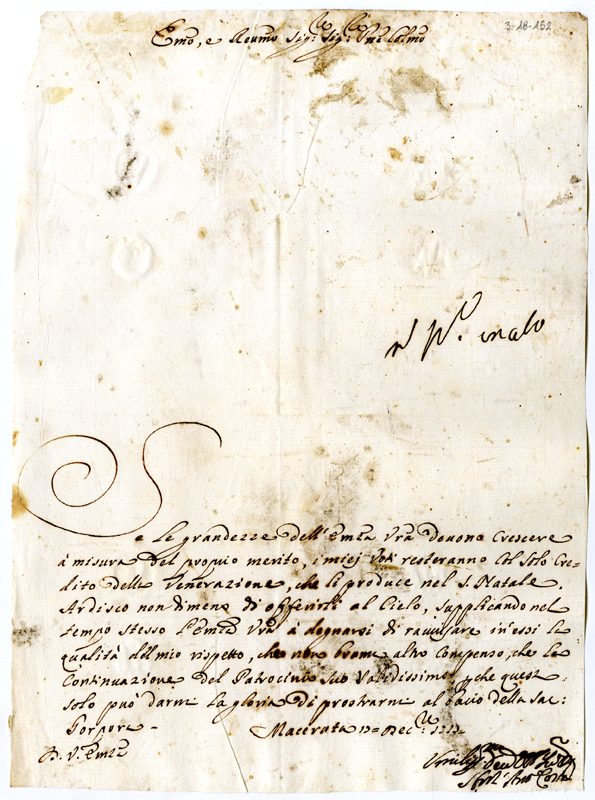 3-18-152
Emo, e Reumo Sig.re Sig.re
Se le grandezze dell'Emza Vra deuono Crescere
à misura del proprio merito, i miej Voti resteranno Col solo Cre-
dito della Venerazione, che li produce nel S. Natale.
Ardisco non dimeno di offerirli al Cielo, supplicando nel
tempo stesso l'Emza Vra à degnarsi di rauuisare in essi la
qualità del mio rispetto, che non brama altro Compenso, che la
Continuazione del Patrocinio suo Validissimo, che questo
solo può darmi la gloria di prostrarmi al bacio della sac:
Porpora -
Macerata
D. V. Emza